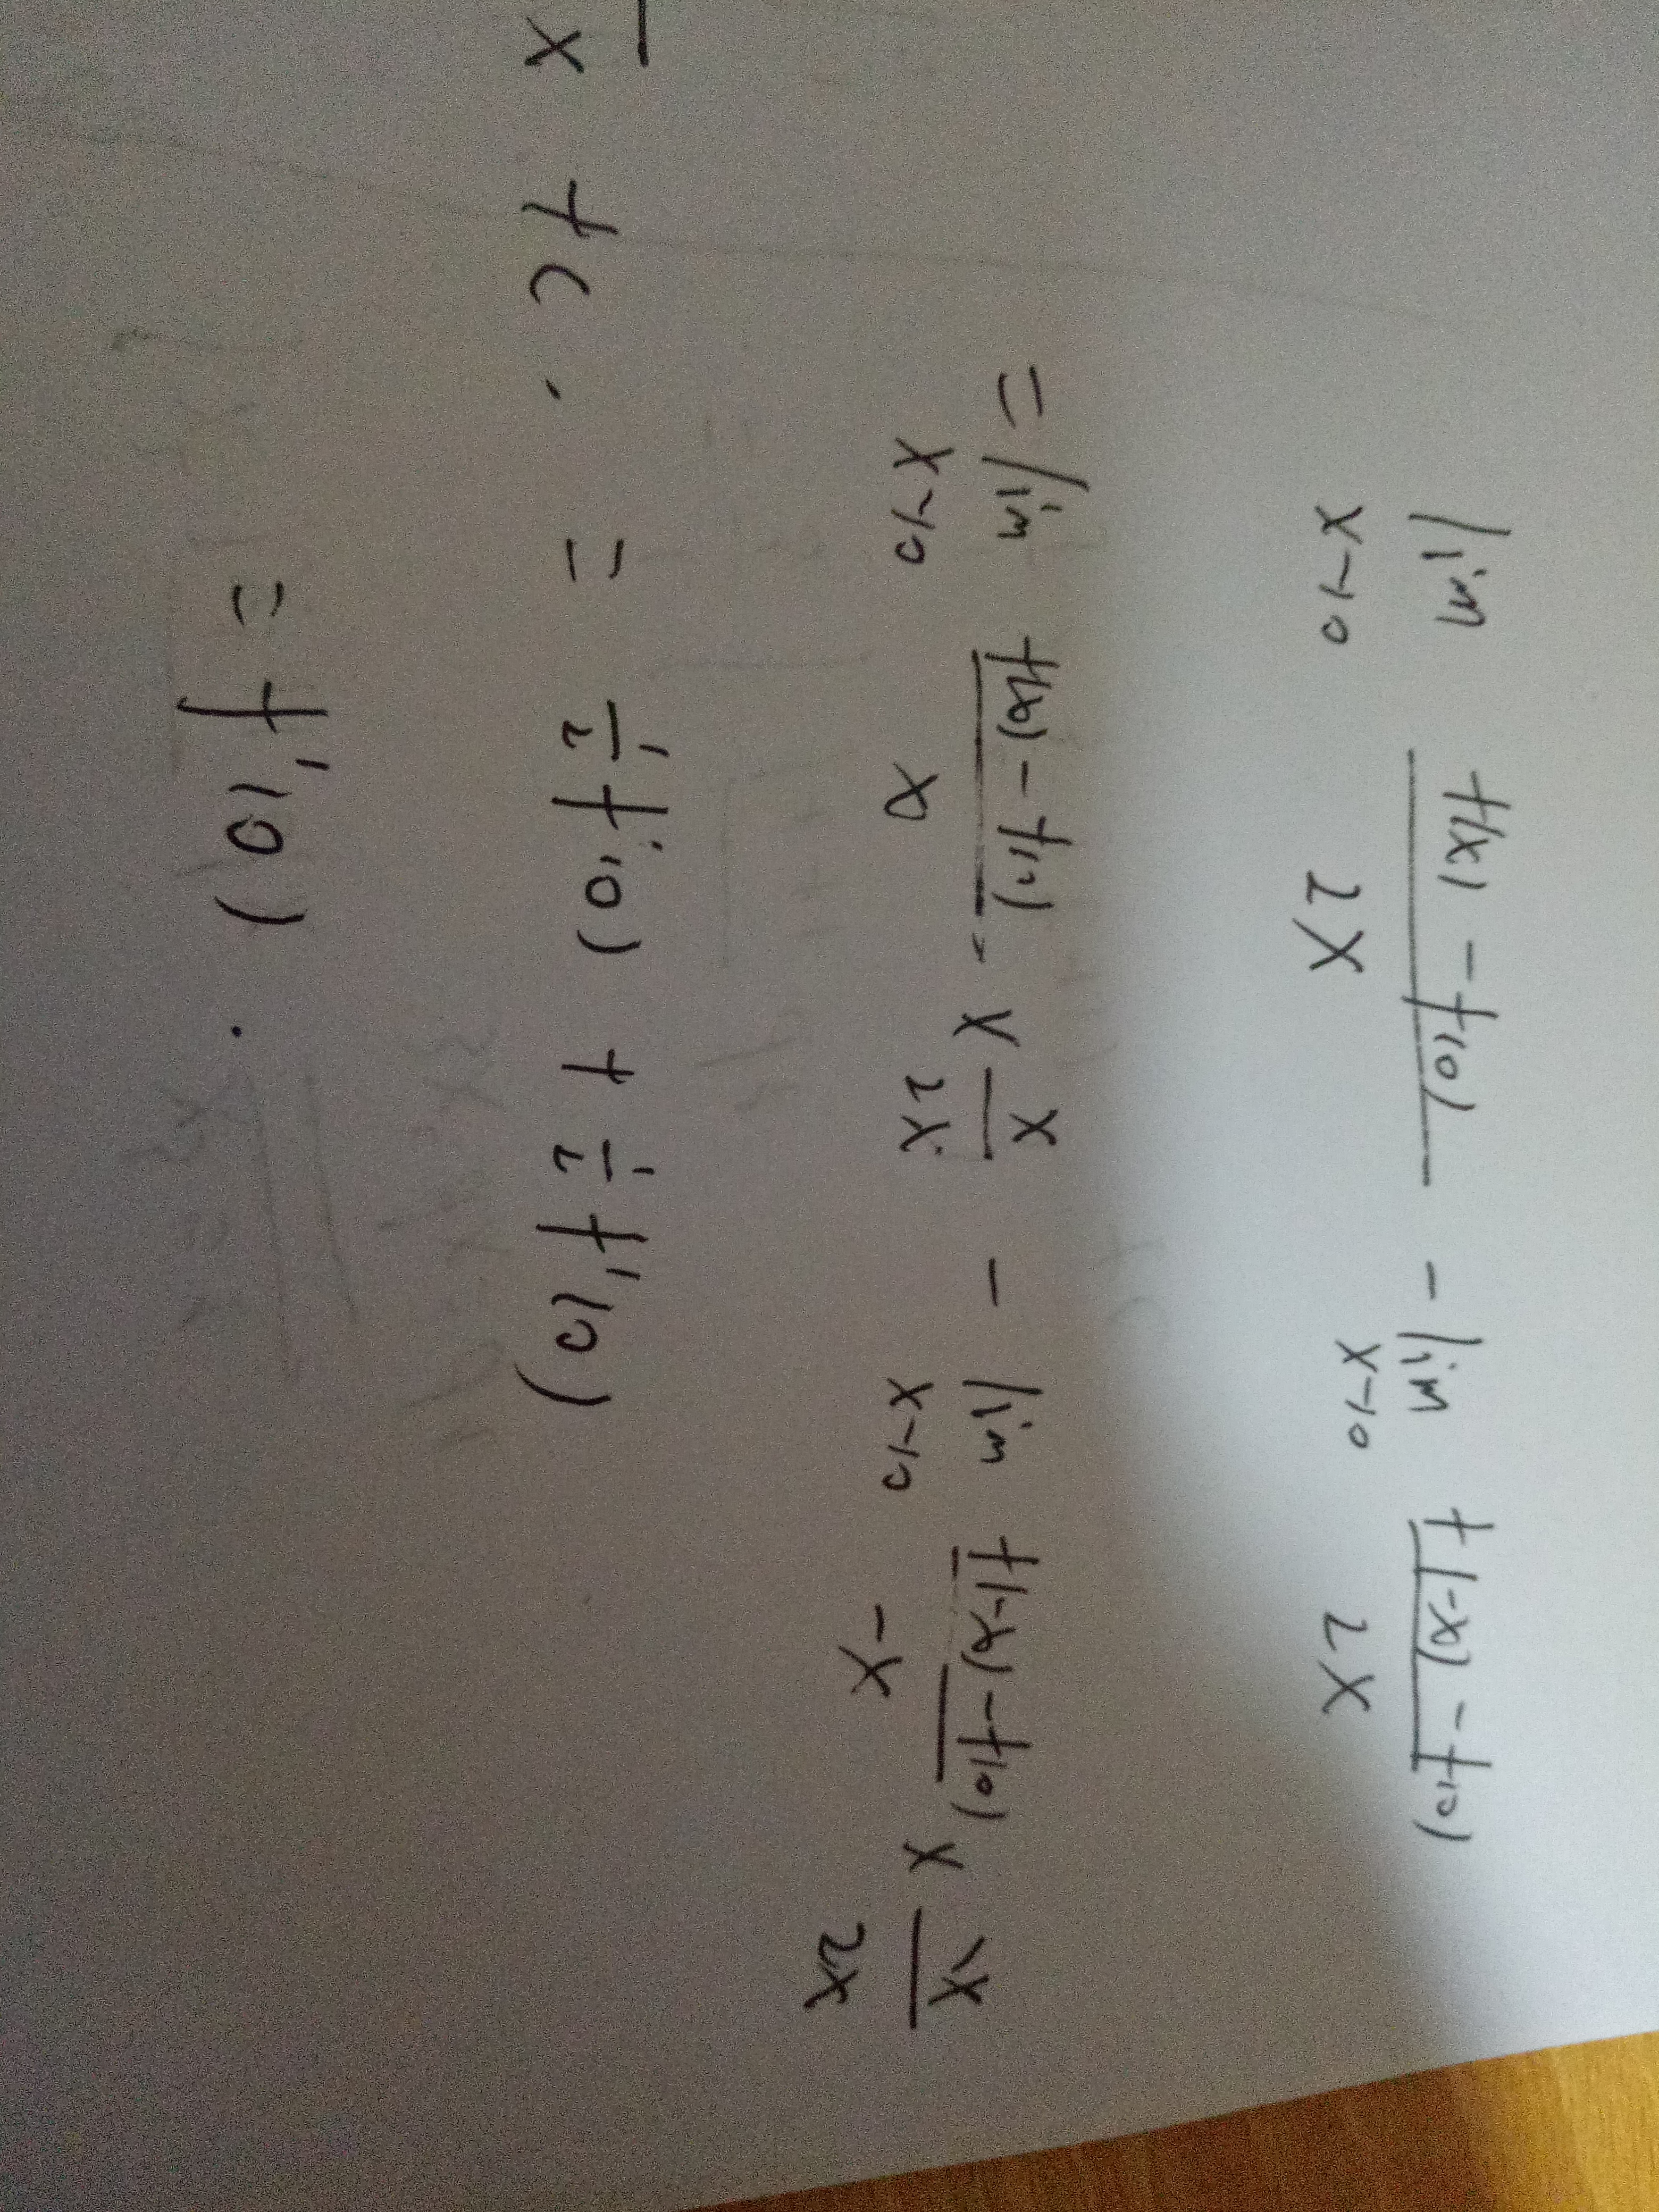 lim x→0 f(x) - f(0) / 2x - lim x→0 f(-x) - f(0) / 2x
= lim x→0 f(x) - f(0) / x · x · x / 2x - lim x→0 f(-x) - f(0) / -x x -x / 2x
= 1/2 f'(0) + 1/2 f'(0)
= f'(0).